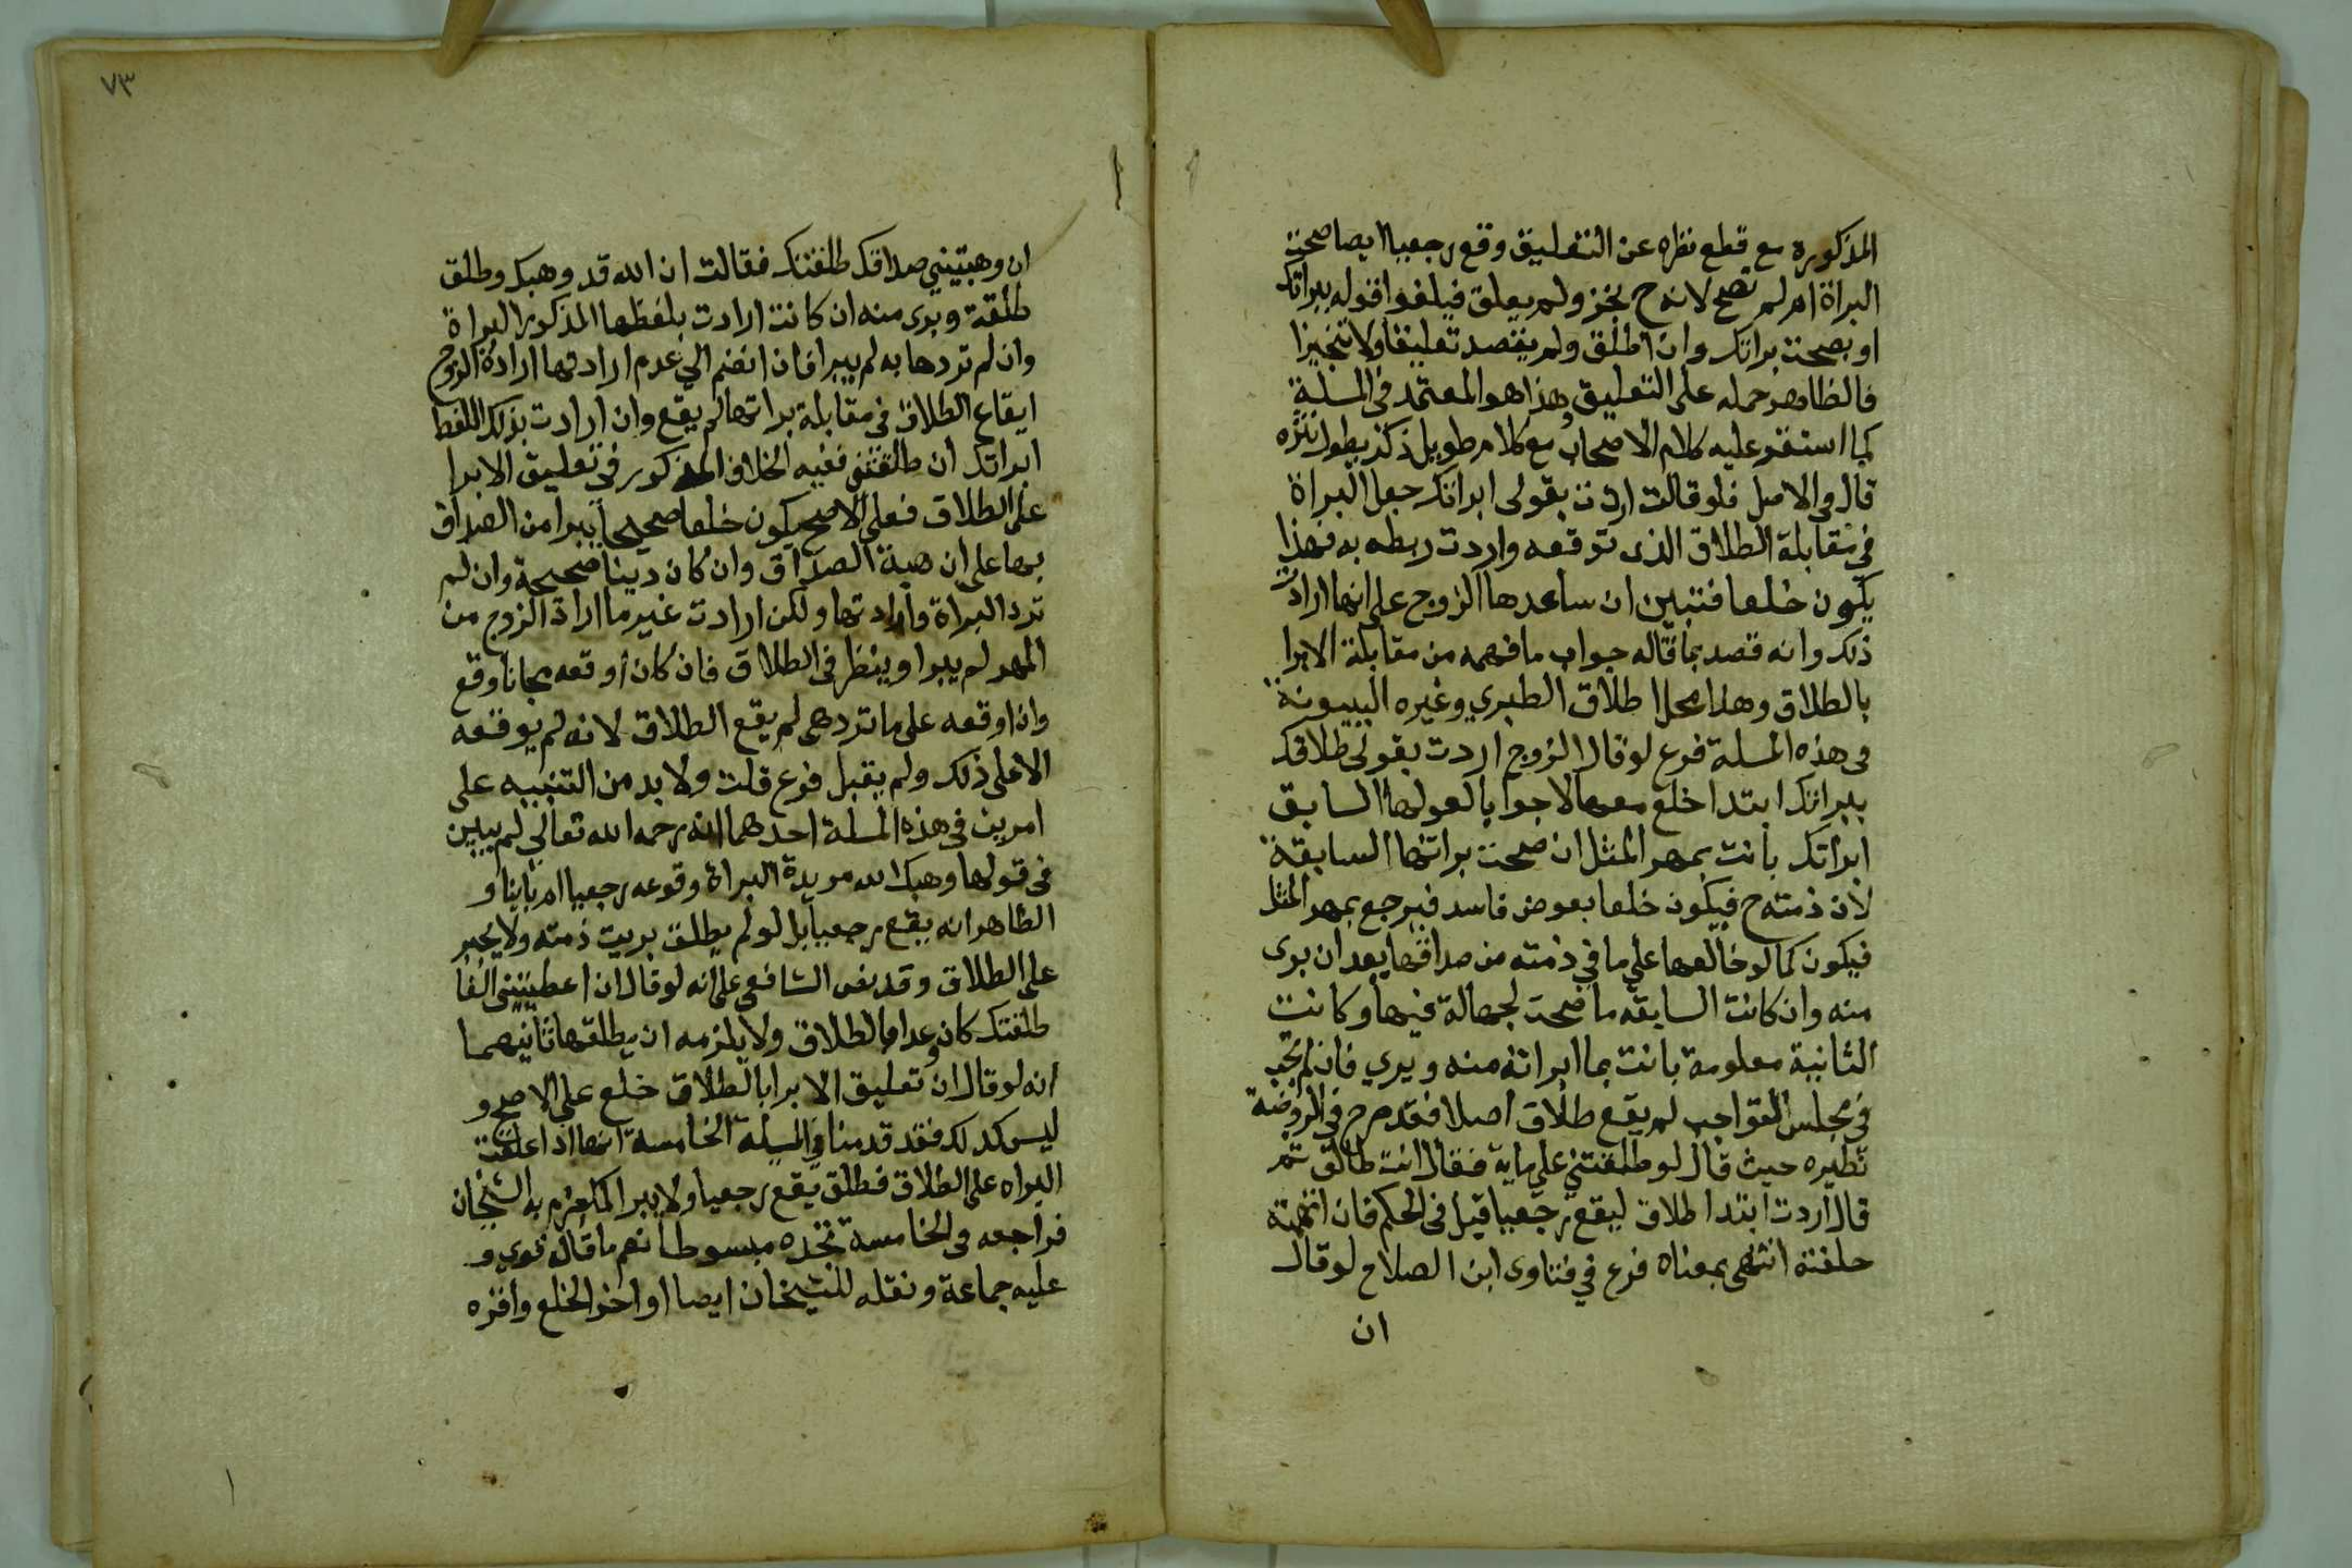 المذكورة مع قطع نظره عن التعليق وقع رجعيا ايضا صحت
البراة ام لم تصح لانه ح نجز ولم يعلق فيلغوا قوله ببراتك
او بصحت براتك وان اطلق ولم يقصد تعليقا ولا تنجيزا
فالظاهر حمله على التعليق هذا هو المعتمد في المسلة
كما استقر عليه كلام الاصحاب مع كلام طويل ذكر يطول
قال في الاصل فلو قالت اردت بقولى ابراتك جعل البراة
في مقابلة الطلاق الذى توقعه واردت ربطه به فهذا
يكون خلعا فتبين ان ساعدها الزوج على انها ارادت
ذلك وانه قصد بما قاله جواب ما فهمه من مقابلة الابرا
بالطلاق وهذا محل اطلاق الطبري وغيره البينونة
في هذه المسلة فرع لو قال الزوج اردت بقولى طلاقك
ببراتك ابتدا خلع معها لا جوابا لقولها السابق
ابراتك بانت بمهر المثل ان صحت براتها السابقة
لان ذمته ح فيكون خلعا بعوض فاسد فيرجع بمهر المثل
فيكون كما لو خالعها على ما في ذمته من صداقها بعد ان برى
منه وان كانت السابقه ما صحت لجهالة فيها وكانت
الثانية معلومة بانت بما ابراته منه ويبري فان لم تجب
في مجلس التواجب لم يقع طلاق اصلا فقد صرح في الروضة
نظيره حيث قال لو طلقتني على ماية فقال انت طالق ثم
قال اردت ابتدا طلاق ليقع رجعيا قبل في الحكم فان اتهمته
حلفته انتهى بمعناه فرع في فتاوى ابن الصلاح لو قال
ان
٧٣
ان وهبتيني صداقك طلقتك فقالت ان الله قد وهبك وطلق
طلقة وبرى منه ان كانت ارادت بلفظها المذكور البراة
وان لم تردها به لم يبرا فان انضم الى عدم ارادتها ارادة الزوج
ايقاع الطلاق في مقابلة براتها لم يقع وان ارادت بذلك اللفظ
ابراتك ان طلقتني ففيه الخلاف المذكور في تعليق الابرا
على الطلاق فعلى الاصح يكون خلعا صحيحا يبرا من الصداق
بها على ان هبة الصداق وان كان دينا صحيحة وان لم
ترد البراة وارادتها ولكن ارادت غير ما اراد الزوج من
المهر لم يبرا وينظر في الطلاق فان كان اوقعه مجانا وقع
وان اوقعه على ما تردهى لم يقع الطلاق لانه لم يوقعه
الا على ذلك ولم يقبل فرع قلت ولا بد من التنبيه على
امرين في هذه المسلة احدهما انه رحمه الله تعالى لم يبين
في قولها وهبك الله مريدة البراة وقوعه رجعيا ام باينا و
الظاهر انه يقع رجعيا بل لو لم يطلق بريت ذمته ولا يجبر
على الطلاق وقد نص الشافعي على انه لو قال ان اعطيتني الفا
طلقتك كان وعدا بالطلاق ولا يلزمه ان يطلقها ثانيهما
انه لو قال ان تعليق الابرا بالطلاق خلع على الاصح و
ليس كدلك فقد قدمنا في المسلة الخامسة انها اذا علقت
البراه على الطلاق فطلق يقع رجعيا ولا يبرا به الشيخان
فراجعه في الخامسة تجده مبسوطا نعم ما قال قوي و
عليه جماعة ونقله للشيخان ايضا اواخر الخلع واقره